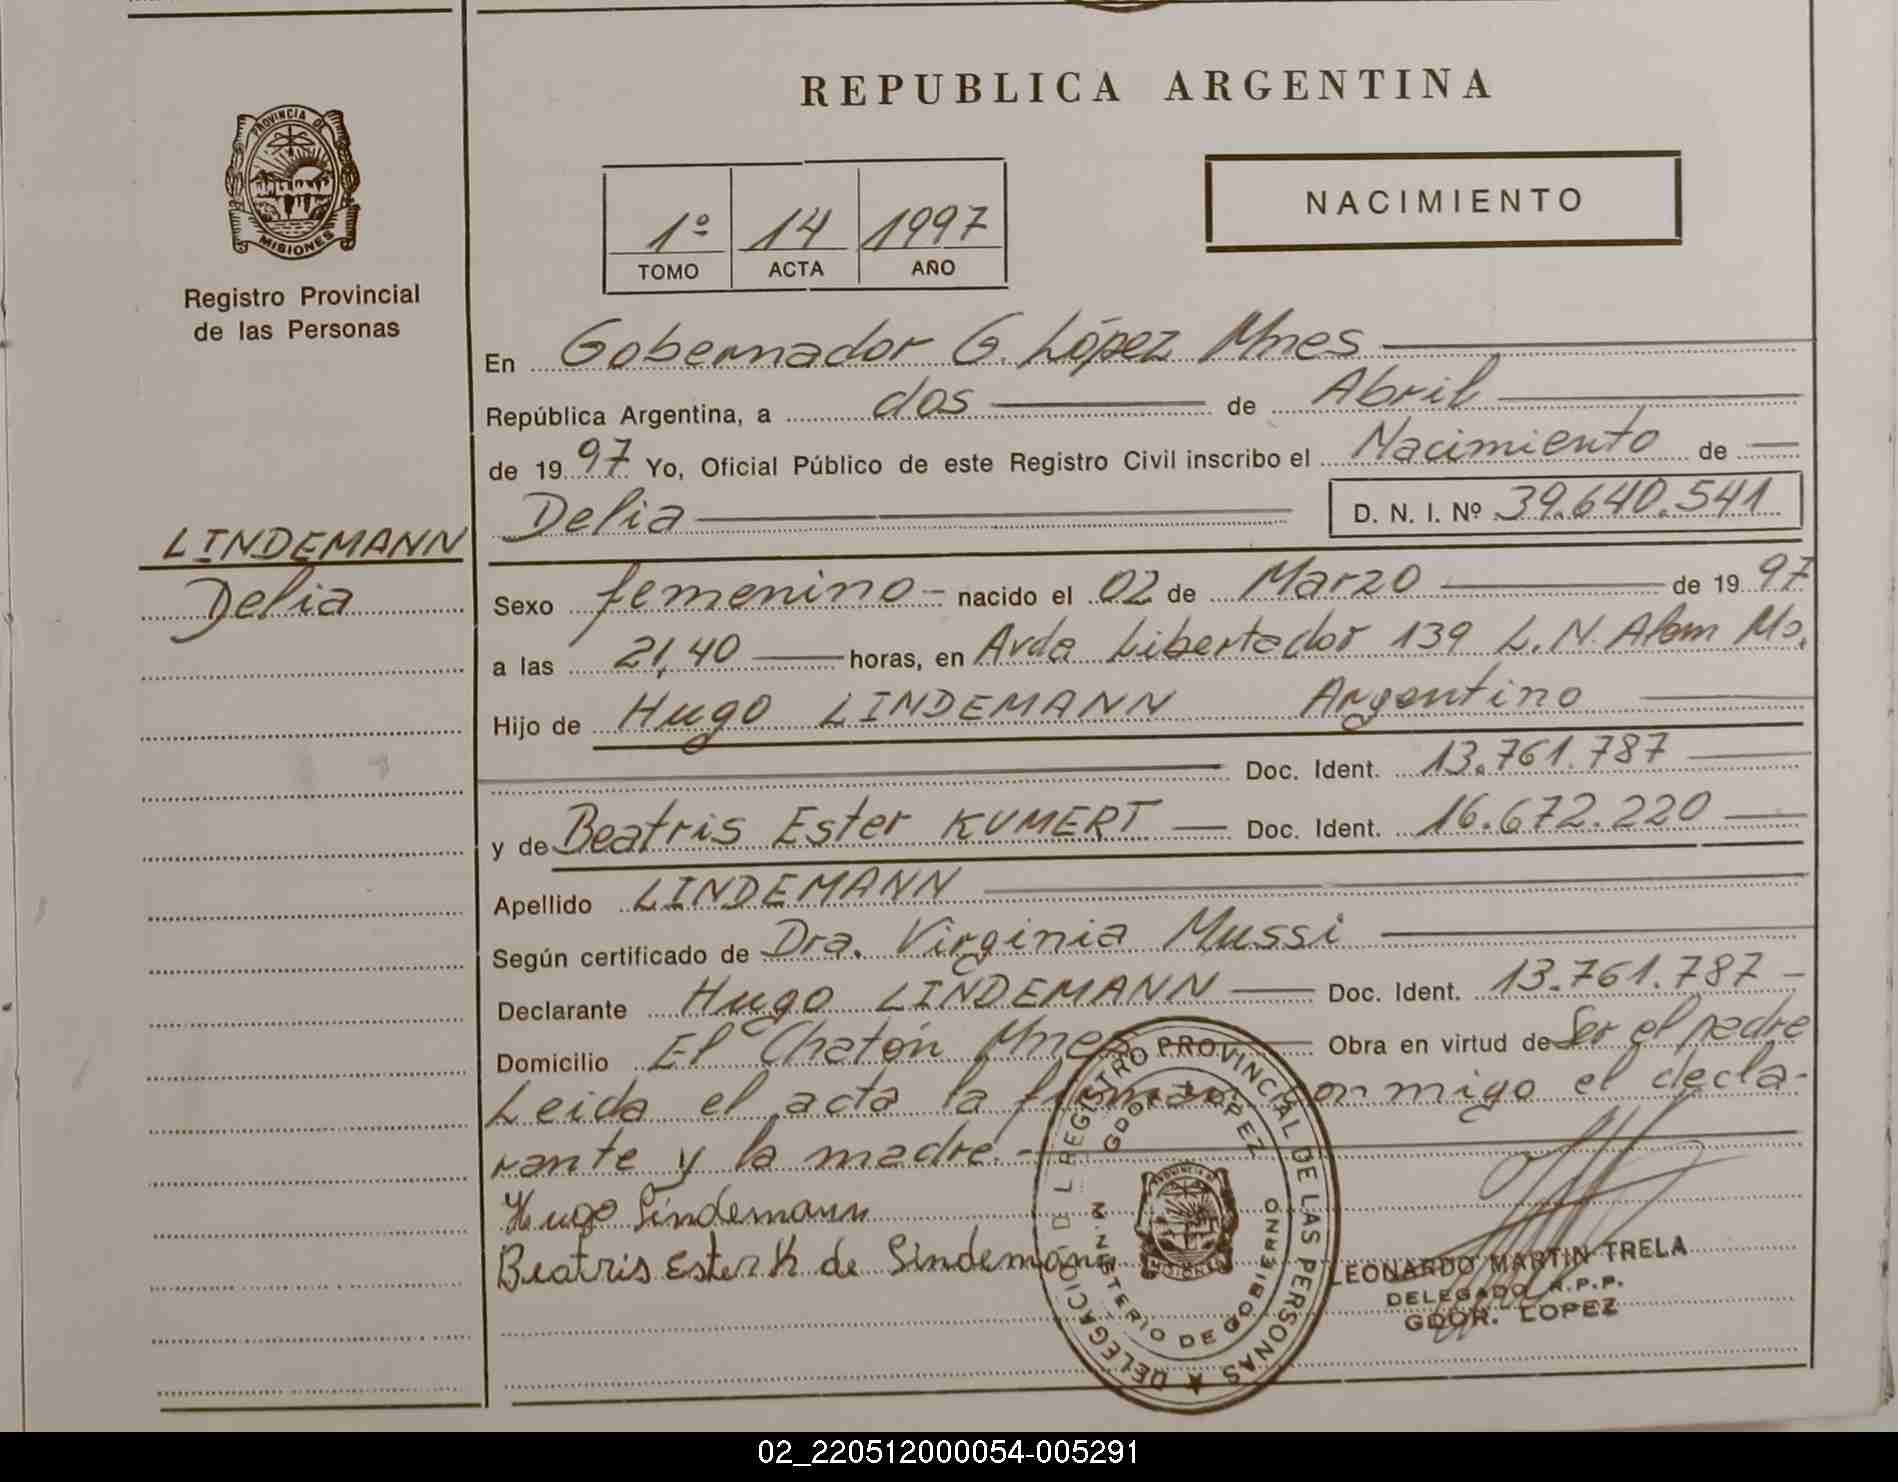 REPUBLICA ARGENTINA
PROVINCIA DE
MISIONES
Registro Provincial
de las Personas
1º 14 1997
TOMO ACTA AÑO
NACIMIENTO
En Gobernador G. López Mnes
República Argentina, a dos de Abril
de 1997 Yo, Oficial Público de este Registro Civil inscribo el Nacimiento de
Delia D. N. I. Nº 39.640.541
LINDEMANN
Delia
Sexo femenino - nacido el 02 de Marzo de 1997
a las 21,40 horas, en Avda Libertador 139 L. N. Alem Ms.
Hijo de Hugo LINDEMANN Argentino
Doc. Ident. 13.761.787
y de Beatris Ester KUMERT Doc. Ident. 16.672.220
Apellido LINDEMANN
Según certificado de Dra. Virginia Mussi
Declarante Hugo LINDEMANN Doc. Ident. 13.761.787 -
Domicilio El Chatón Mnes Obra en virtud de Ser el padre
Leida el acta la firman conmigo el decla-
rante y la madre. -
Hugo Lindemann
Beatris Ester K de Lindemann
DELEGACION DEL REGISTRO PROVINCIAL DE LAS PERSONAS
GDOR. LOPEZ
MINISTERIO DE GOBIERNO
PROVINCIA DE
MISIONES
LEONARDO MARTIN TRELA
DELEGADO R.P.P.
GDOR. LOPEZ
02_220512000054-005291